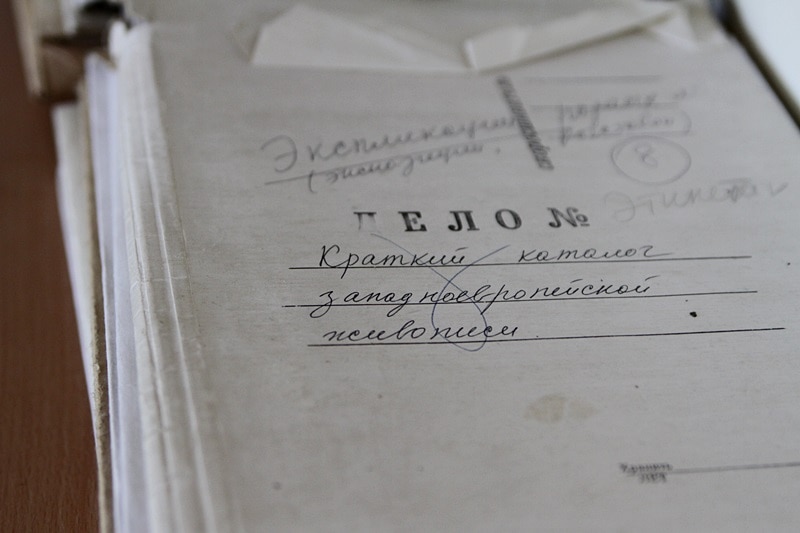 Экспликации
(экспозиции.
8
Этикетаж
ДЕЛО №
Краткий каталог
западноевропейской
живописи
Хранить
лет